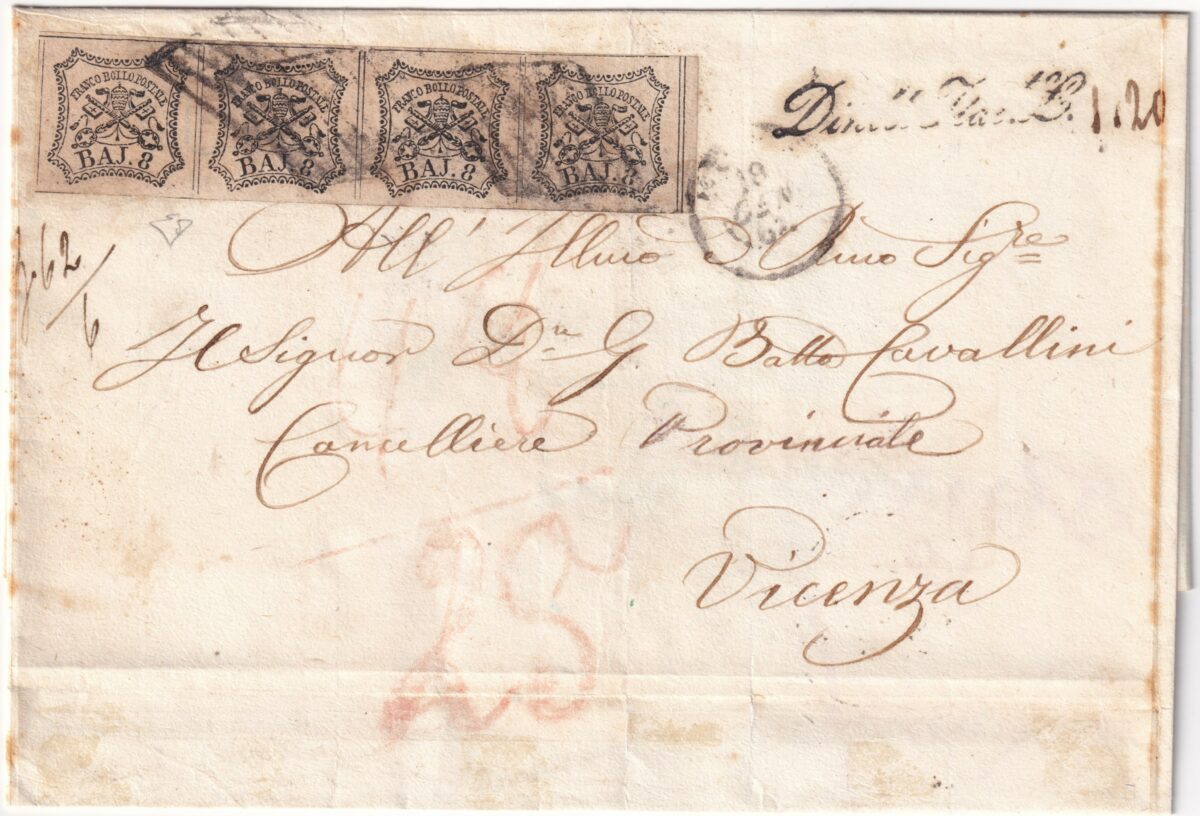 FRANCO BOLLO POSTALE BAJ. 8
FRANCO BOLLO POSTALE BAJ. 8
FRANCO BOLLO POSTALE BAJ. 8
FRANCO BOLLO POSTALE BAJ. 8
1.20
GEN
62
62/6
All' Illmo e Rmo Sigre
Il Signor Dn G. Batta Cavallini
Cancelliere Provinciale
Vicenza